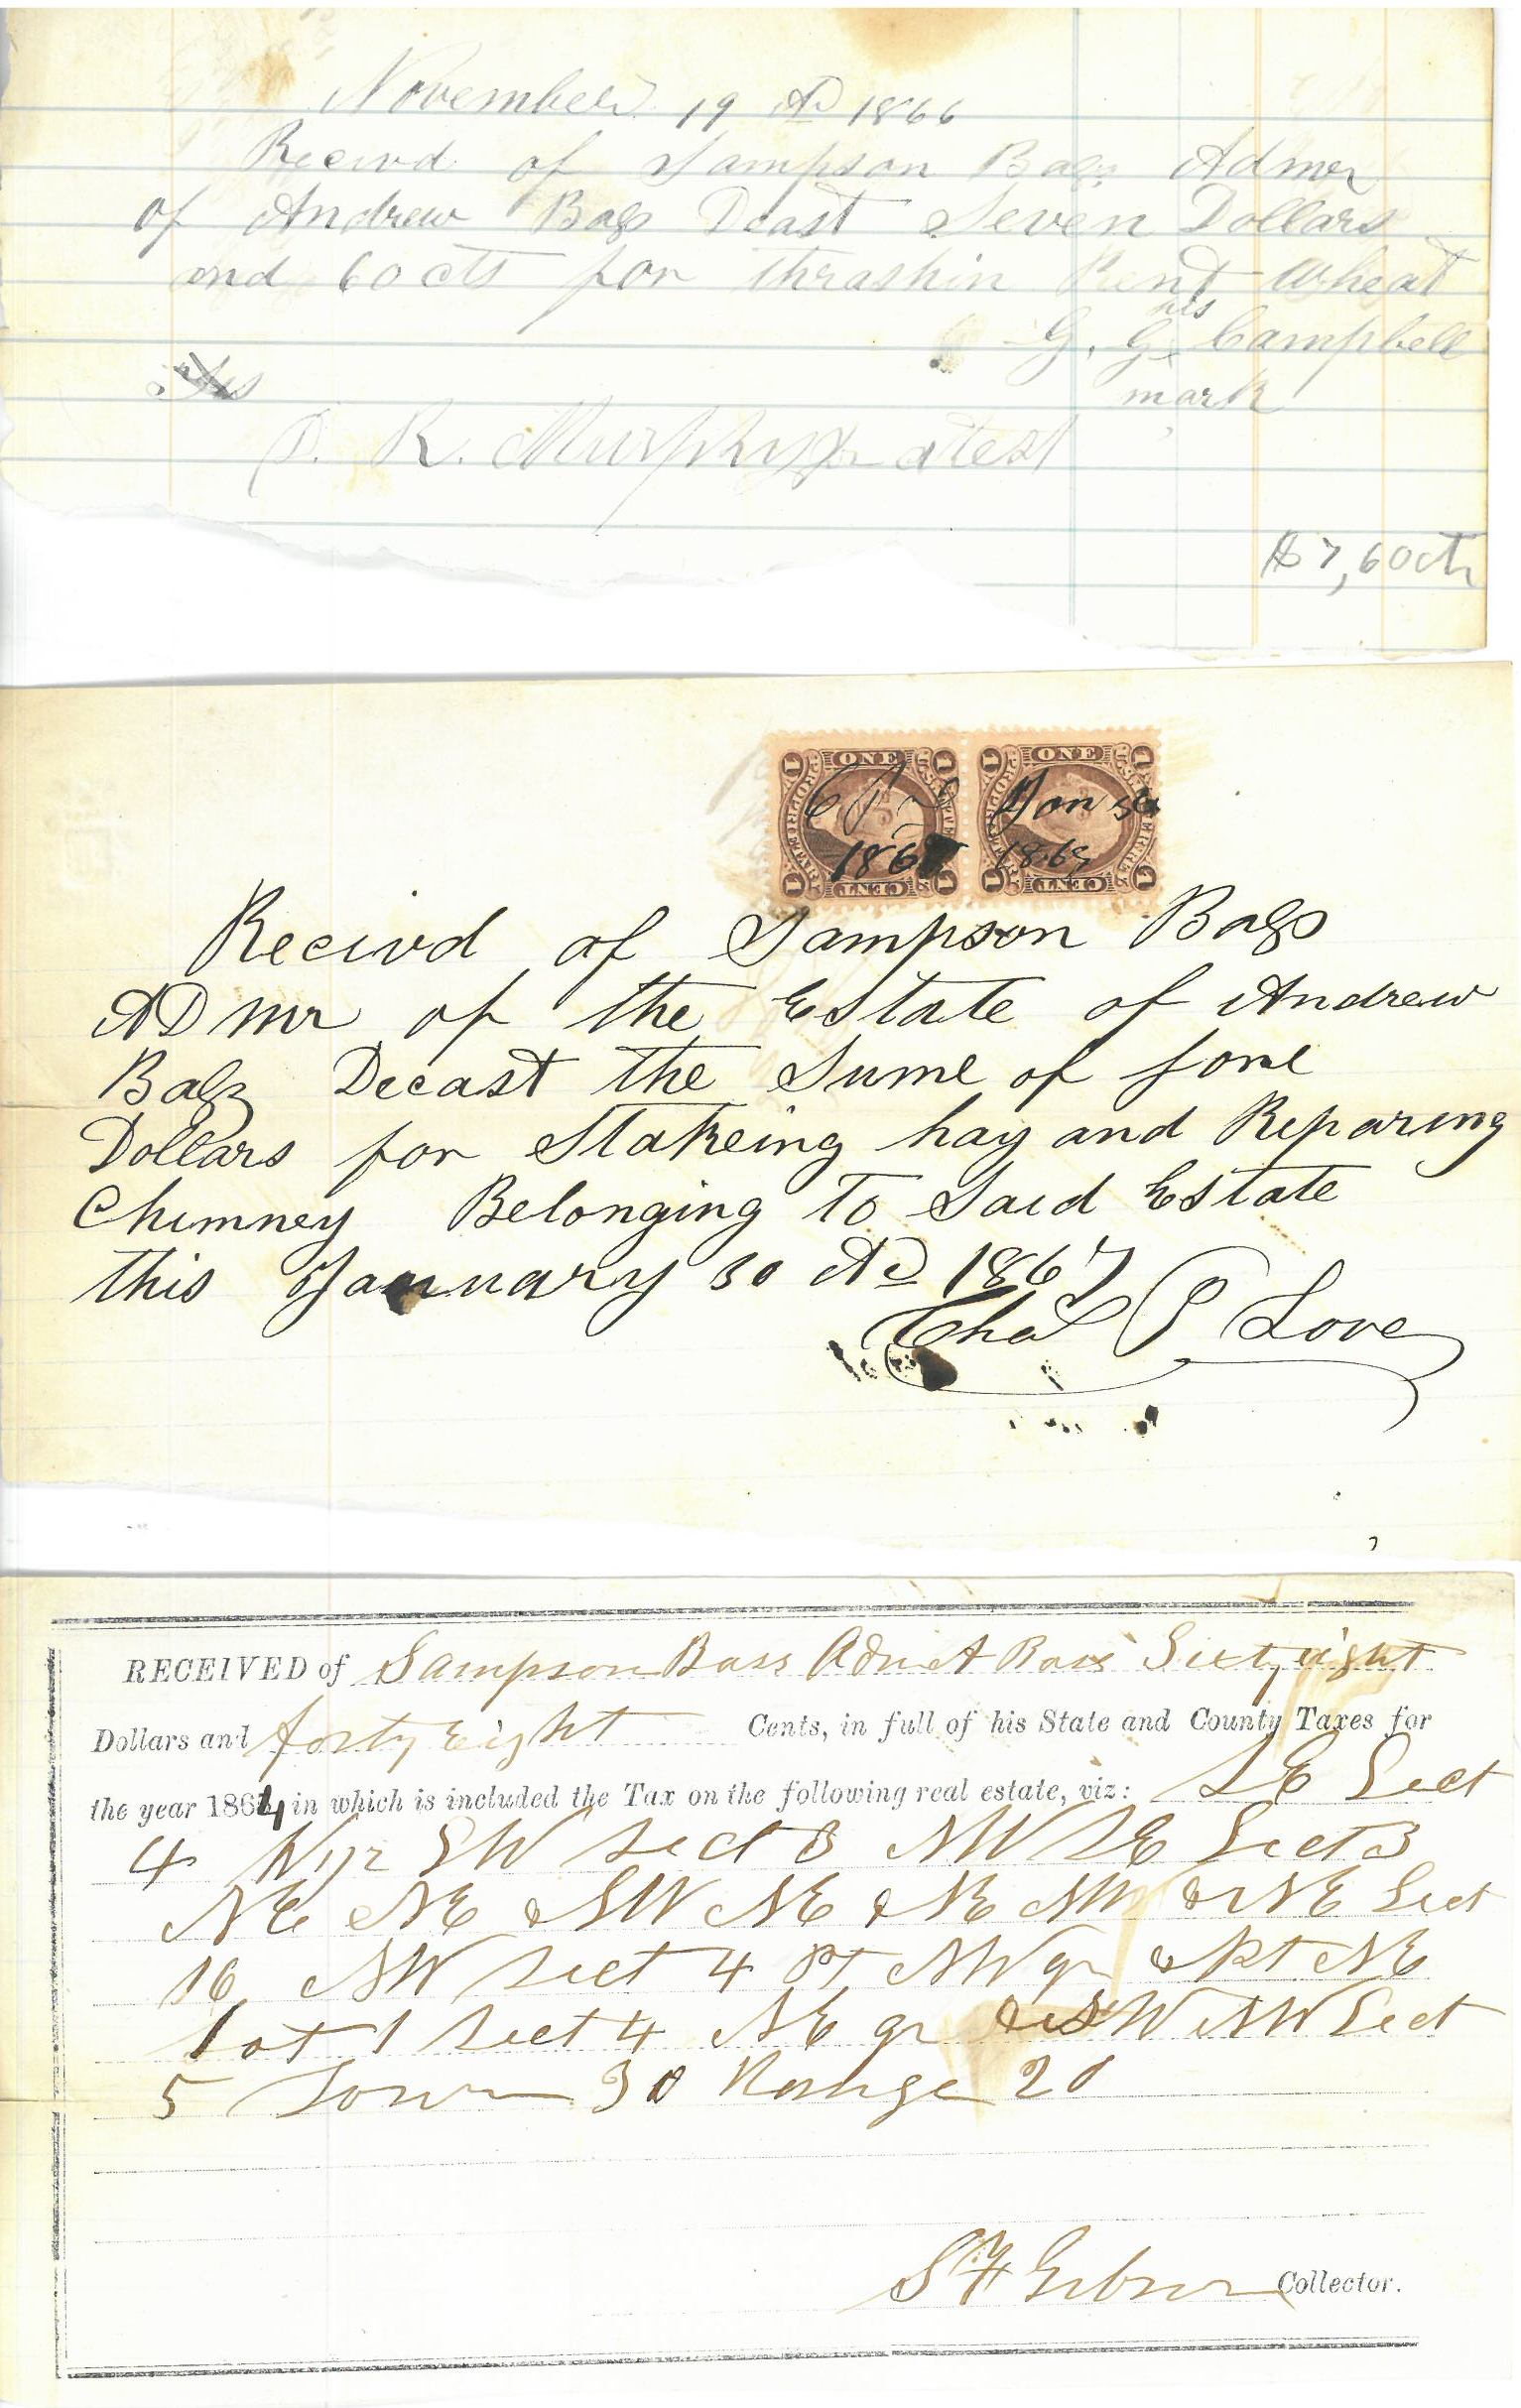 November 19 AD 1866
Recivd of Sampson Bass Admr
of Andrew Bass Dcast Seven Dollars
and 60 cts for thrashin Rent wheat
his
G. G. x Campbell
mark
R. Murphy atest
$7,60cts
ONE ONE
1867 Jan 30
1867
CENT CENT
Recivd of Sampson Bass
ADmr of the Estate of Andrew
Bass Decast the Sume of fore
Dollars for Stakeing hay and Reparing
Chimney Belonging To Said Estate
this January 30 AD 1867
Chas P Love
RECEIVED of Sampson Bass Adm A Bass Sixty eight
Dollars and forty Eight Cents, in full of his State and County Taxes for
the year 1864 in which is included the Tax on the following real estate, viz: SE Sect
4 SW Sect 3 NW SE Sect 3
NE NE & SW NE & NE NW & NE Sect
16 NW Sect 4 Pt NW qr & Pt NE
Lot 1 Sect 4 NE qr & SW NW Sect
5 Town 30 Range 20
S F Gibson Collector.